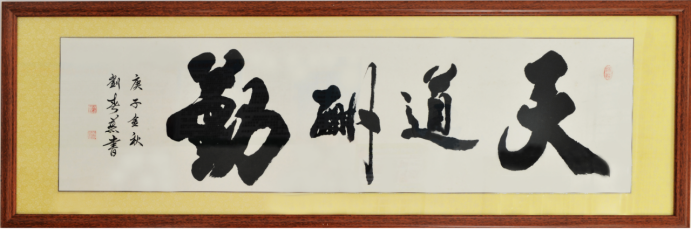 天道酬勤
庚子金秋
劉春燕書